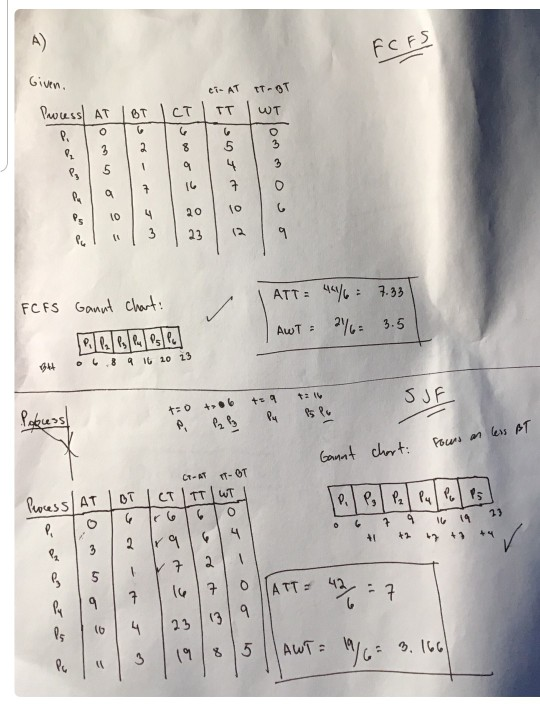 A)
FCFS
Given.
CT-AT TT-BT
Process AT BT CT TT WT
P1 0 6 6 6 0
P2 3 2 8 5 3
P3 5 1 9 4 3
P4 9 7 16 7 0
P5 10 4 20 10 6
P6 11 3 23 12 9
ATT = 44/6 = 7.33
AWT = 21/6 = 3.5
FCFS Gannt Chart: ✓
P1 P2 P3 P4 P5 P6
0 6 8 9 16 20 23
SJF
t=0 6 t=9 t=16
P1 P2 P3 P4 P5 P6
Gannt chart: Focus on less BT
P1 P3 P2 P4 P6 P5
0 6 7 9 16 19 23
+1 +2 +7 +3 +4 ✓
CT-AT TT-BT
Process AT BT CT TT WT
P1 0 6 6 6 0
P2 3 2 9 6 4
P3 5 1 7 2 1
P4 9 7 16 7 0
P5 10 4 23 13 9
P6 11 3 19 8 5
ATT = 42/6 = 7
AWT = 19/6 = 3.166